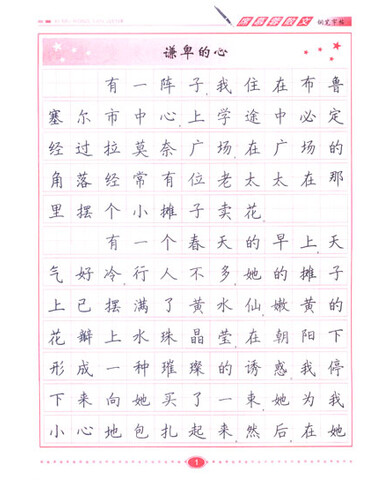 散文 钢笔字帖
谦卑的心
有一阵子,我住在布鲁
塞尔市中心,上学途中必定
经过拉莫奈广场,在广场的
角落经常有位老太太在那
里摆个小摊子卖花.
有一个春天的早上,天
气好冷,行人不多,她的摊子
上已摆满了黄水仙,嫩黄的
花瓣上水珠晶莹,在朝阳下
形成一种璀璨的诱惑,我停
下来向她买了一束,她为我
小心地包扎起来,然后,在她
1